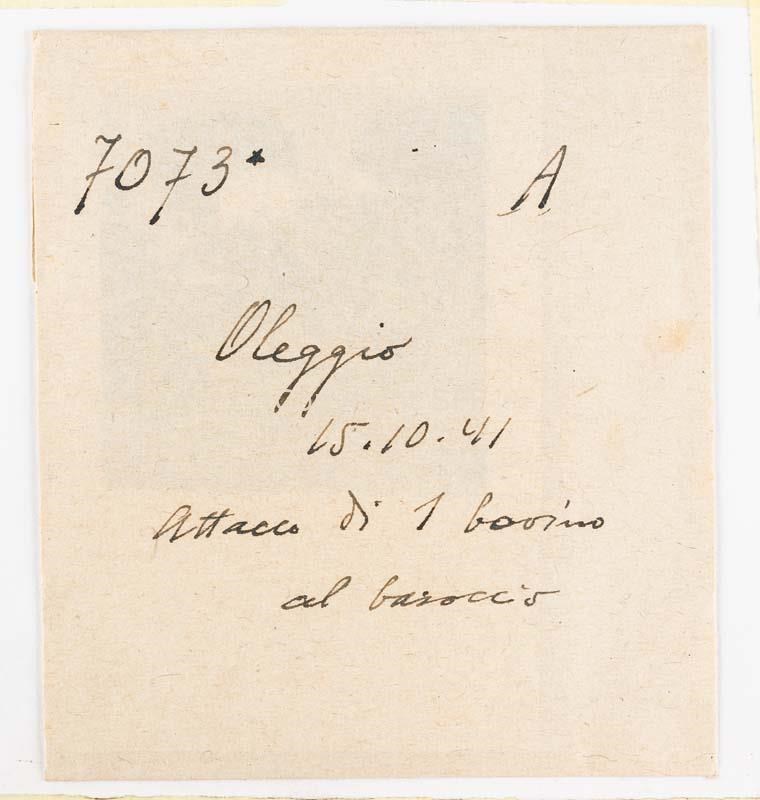 7073* A
Oleggio
15.10.41
Attacco di 1 bovino
al baroccio